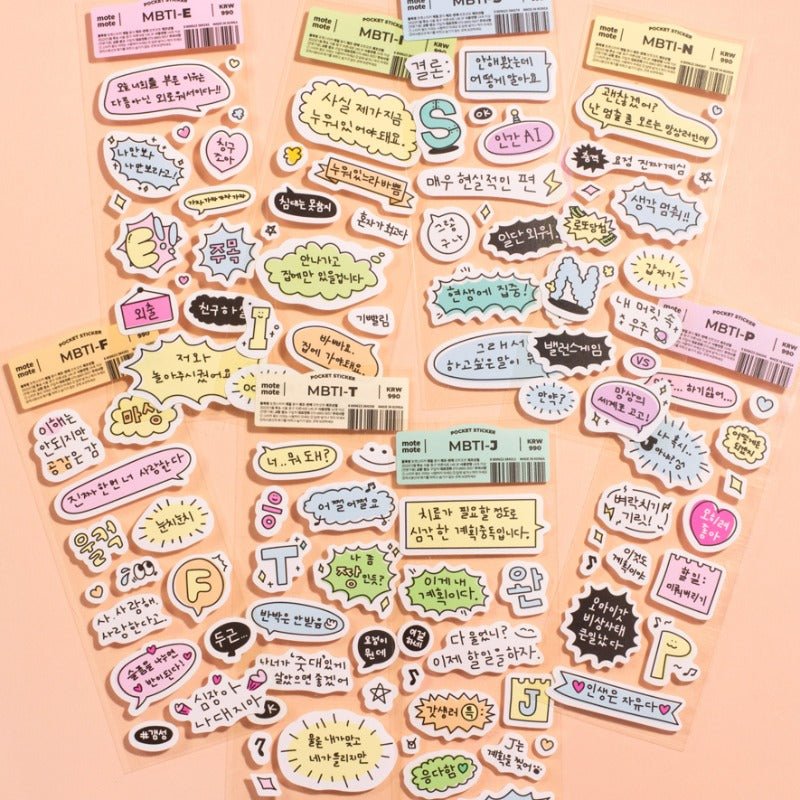 mote mote
POCKET STICKER
MBTI-E
KRW 990
오늘 너희를 부른 이유는
다름아닌 외로워서이다!!
나 안봐
나 안보라고!
친구
좋아
가자 가자 가자 가자
E!!
주목
외출
저와
놀아주시겠어요
POCKET STICKER
사실 제가 지금
누워있어야돼요.
누워있느라 바쁨
침대는 못참지
혼자가 최고다
안나가고
집에만 있을겁니다
기빨림
I
바빠요.
집에 가야돼요.
결론:
안해봤는데
어떻게 알아요.
S
OK
인간 AI
매우 현실적인 편
그렇
구나
일단 외워.
현생에 집중!
그래서
하고싶은 말이
mote mote
POCKET STICKER
MBTI-N
KRW 990
괜찮겠어?
난 멈출 줄 모르는 망상러인데
출격
요정 진짜 계심
생각 멈춰!!
로또 당첨
갑자기
N
내 머릿 속
우주
밸런스게임
VS
망상의
세계로 고고!
마야?
mote mote
POCKET STICKER
MBTI-F
990
이해는
안되지만
공감은 감
마상
진짜 한번 더 사랑한다
울컥
눈치 눈치
F
사.사랑해
사랑한다고.
두근...
슬픔을 나누면
반이 된다!
심장아
나대지마
#갬성
mote mote
POCKET STICKER
MBTI-T
KRW 990
너..뭐 돼?
%
어쩔어쩔요
T
나 좀
짱인듯?
반박은 안받음
요점이
뭔데
나 너가 '줏대'있게
살았으면 좋겠어
OK
7
물론 내가 맞고
네가 틀리지만
mote mote
POCKET STICKER
MBTI-J
KRW 990
치료가 필요할 정도로
심각한 계획중독입니다.
이게 내
계획이다.
완
다 울었니?
이제 할일을 하자.
갓생러
J
J는
계획을 찢어
응 다함
POCKET STICKER
MBTI-P
KRW 990
... 하기 싫어...
나 혹시..
J 아냐?
어떻게든
되겠지
벼락치기
기린!
오히려
좋아
이것도
계획이야
할일:
미뤄버리기
오 마이갓
비상사태
큰일났다
P
인생은 자유다